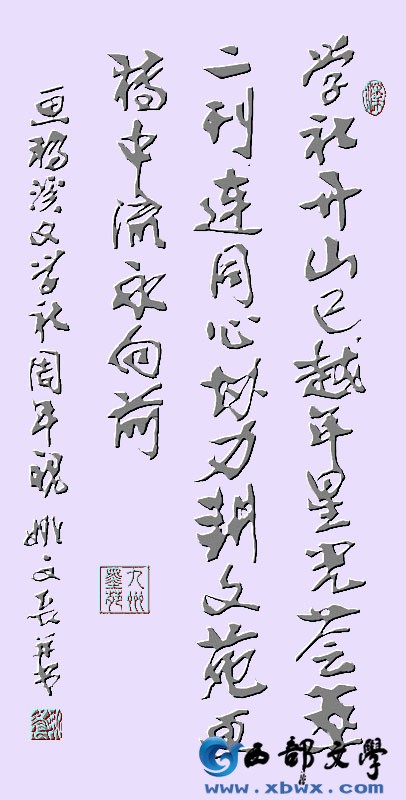 学社开山已越年星光荟萃
二刊连同心协力耕文苑再
中流永向前
溪文学社周年祝 姚文长并书
九州墨苑
西部文學
www.xbwx.com